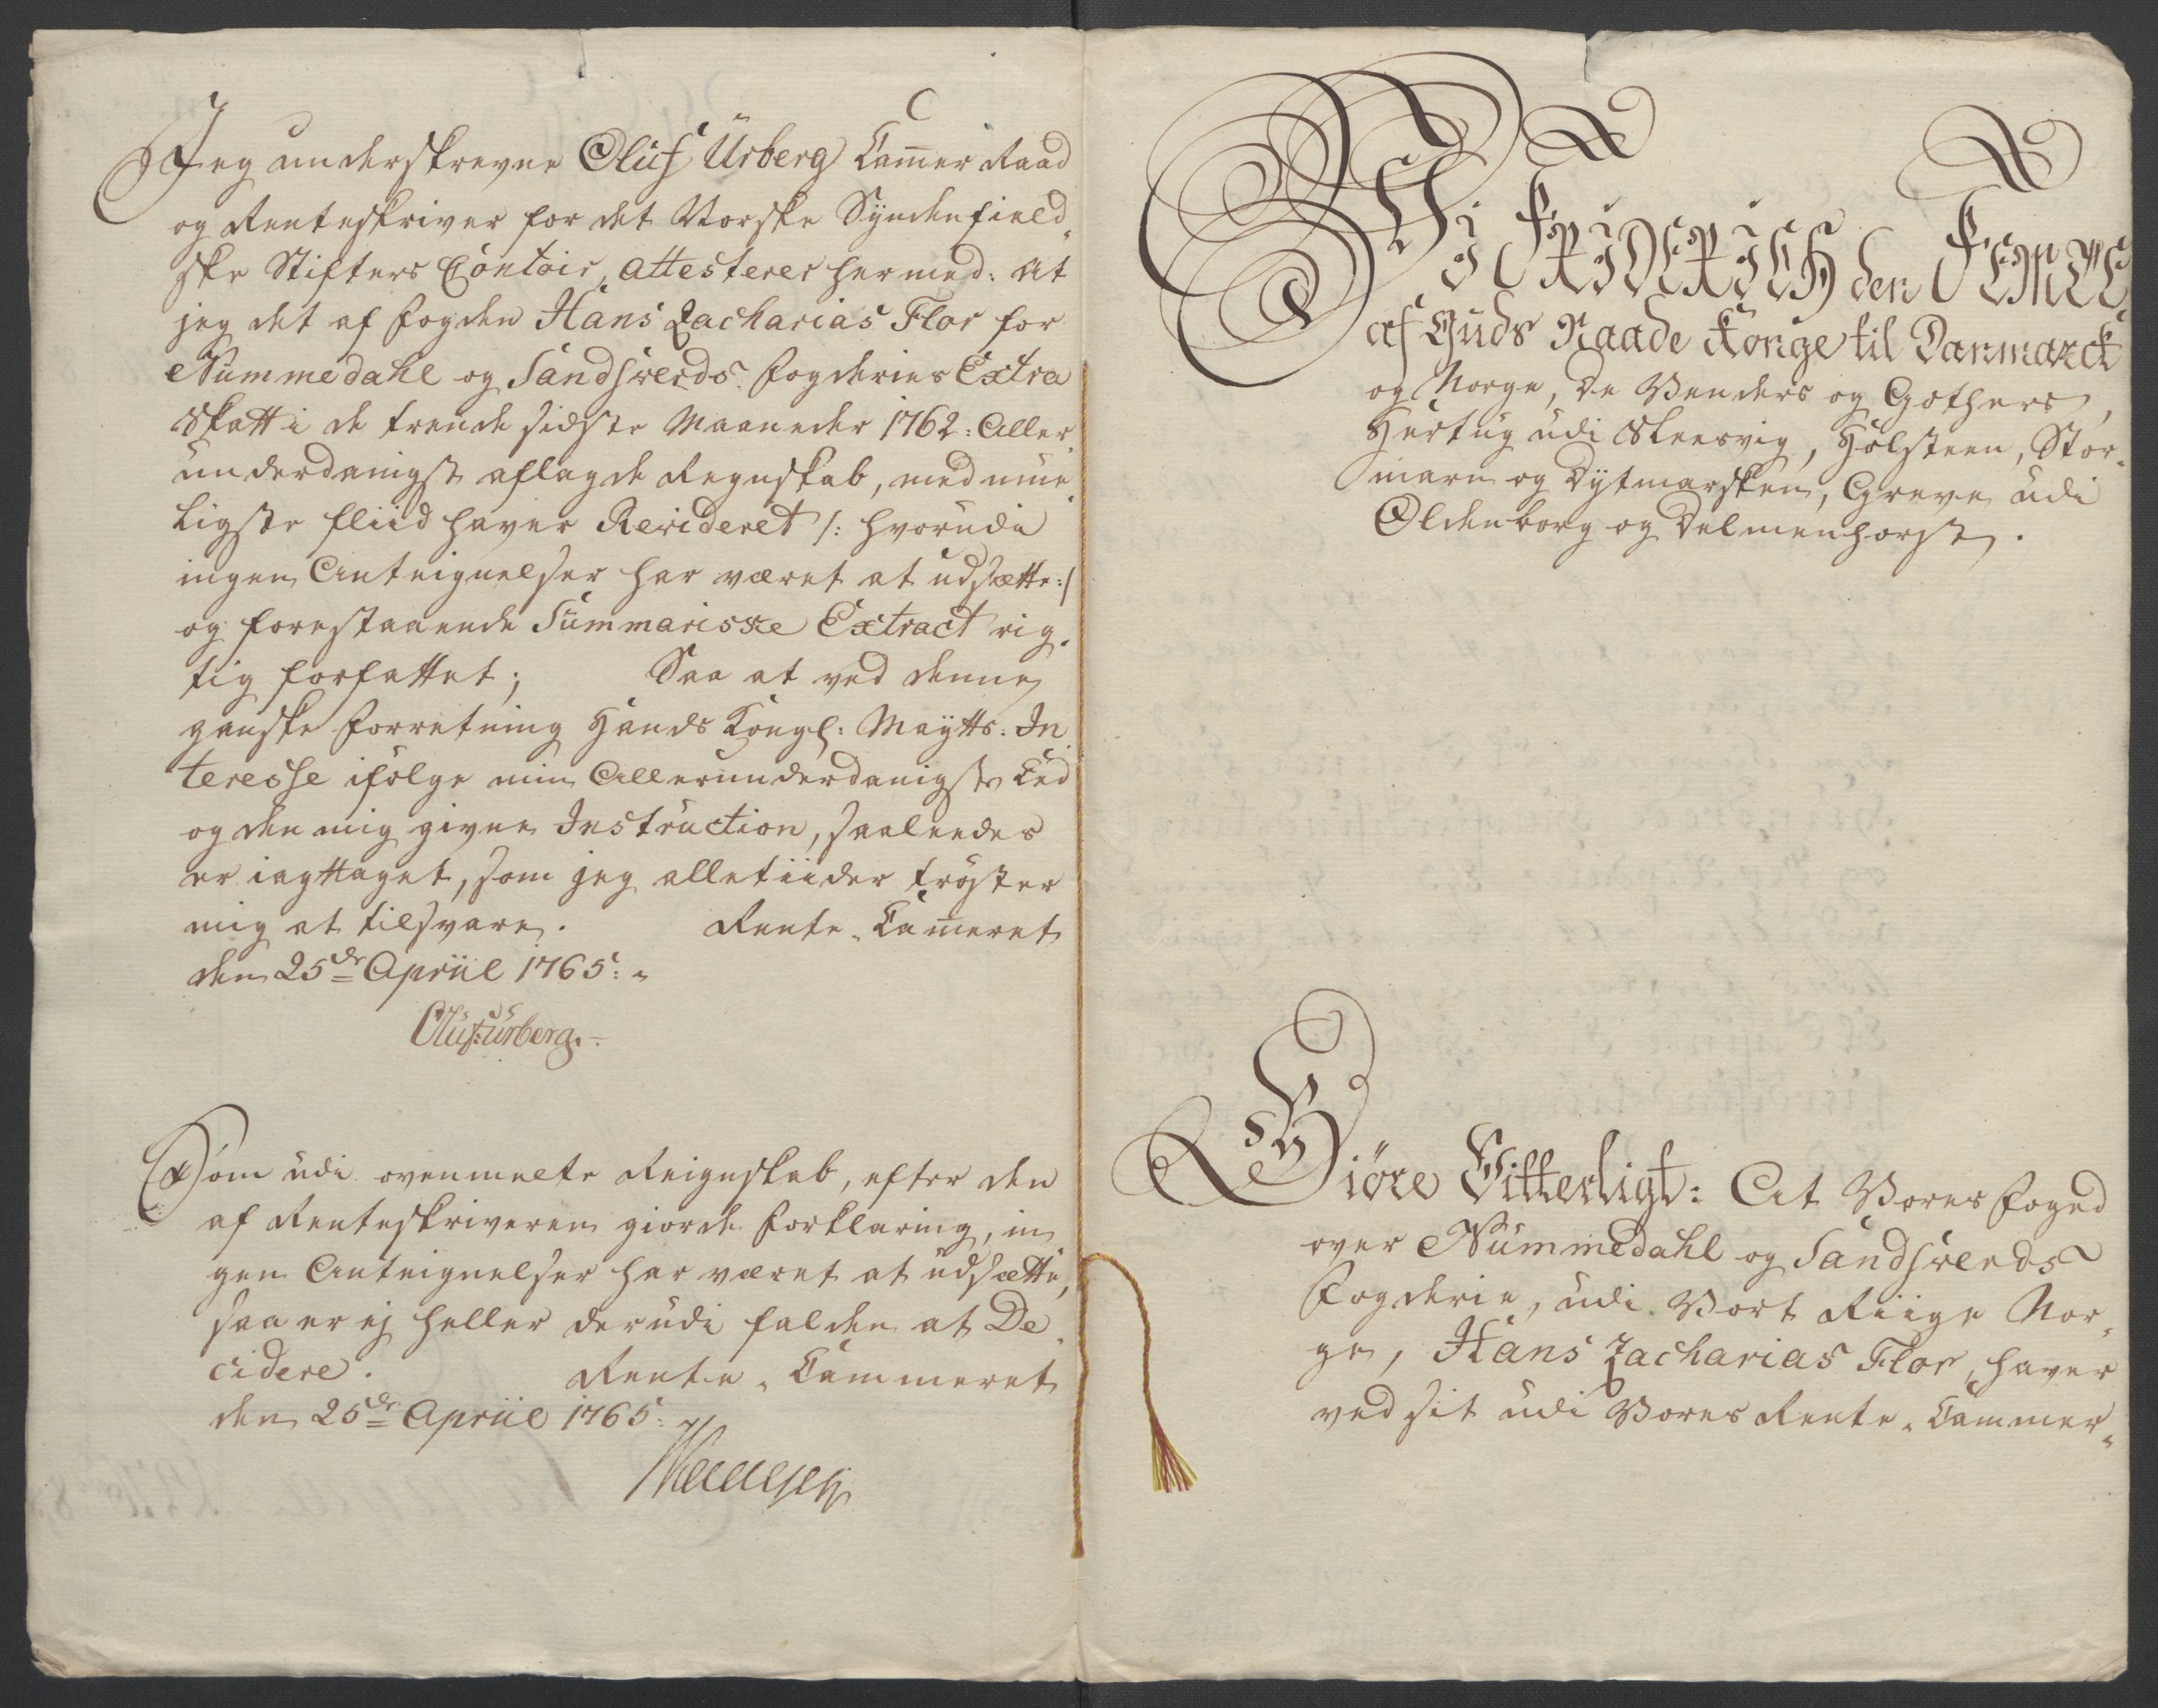 Jeg underskrevne Oluf Urberg Cammer Raad
og Renteskriver for det Norske Syndenfield-
ske Stifters Contoir, attesterer hermed: At
jeg det af Fogden Hans Zacharias Flor for
Nummedahl og Sandsverds Fogderies Extra
Skatt i de trende sidste Maaneder 1762: Aller
underdanigst aflagde Regnskab, med mue-
ligste fliid haver Revideret /: hvorudi
ingen Antegnelser har været at udsætte :/
og forestaaende Summariske Extract rig-
tig forfattet; Saa at ved denne
ganske Forretning Hands Kongl: Maytts: In
teresse ifølge min Allerunderdanigste Eed
og den mig givne Instruction, saaledes
er iagttaget, som jeg alletiider trøster
mig at tilsvare. Rente-Cammeret
den 25de Apriil 1765:
Oluf Urberg.
Som udi ovenmelte Reignskab, efter den
af Renteskriveren giorde Forklaring, in
gen Anteignelser har været at udsætte,
saa er ej heller derudi falden at De-
cidere. Rente-Cammeret
den 25de Apriil 1765:
Wi FRIDERICH den FEMTE
af Guds Naade Konge til Danmarck
og Norge, De Venders og Gothers,
Hertug udi Slesvig, Holsteen, Stor-
marn og Dytmarsken, Greve udi
Oldenborg og Delmenhorst.
Giöre Vitterligt: At Vores Foged
over Nummedahl og Sandsverds
Fogderie, udi Vort Riige Nor-
ge, Hans Zacharias Flor, haver
ved sit udi Vores Rente-Cammer-